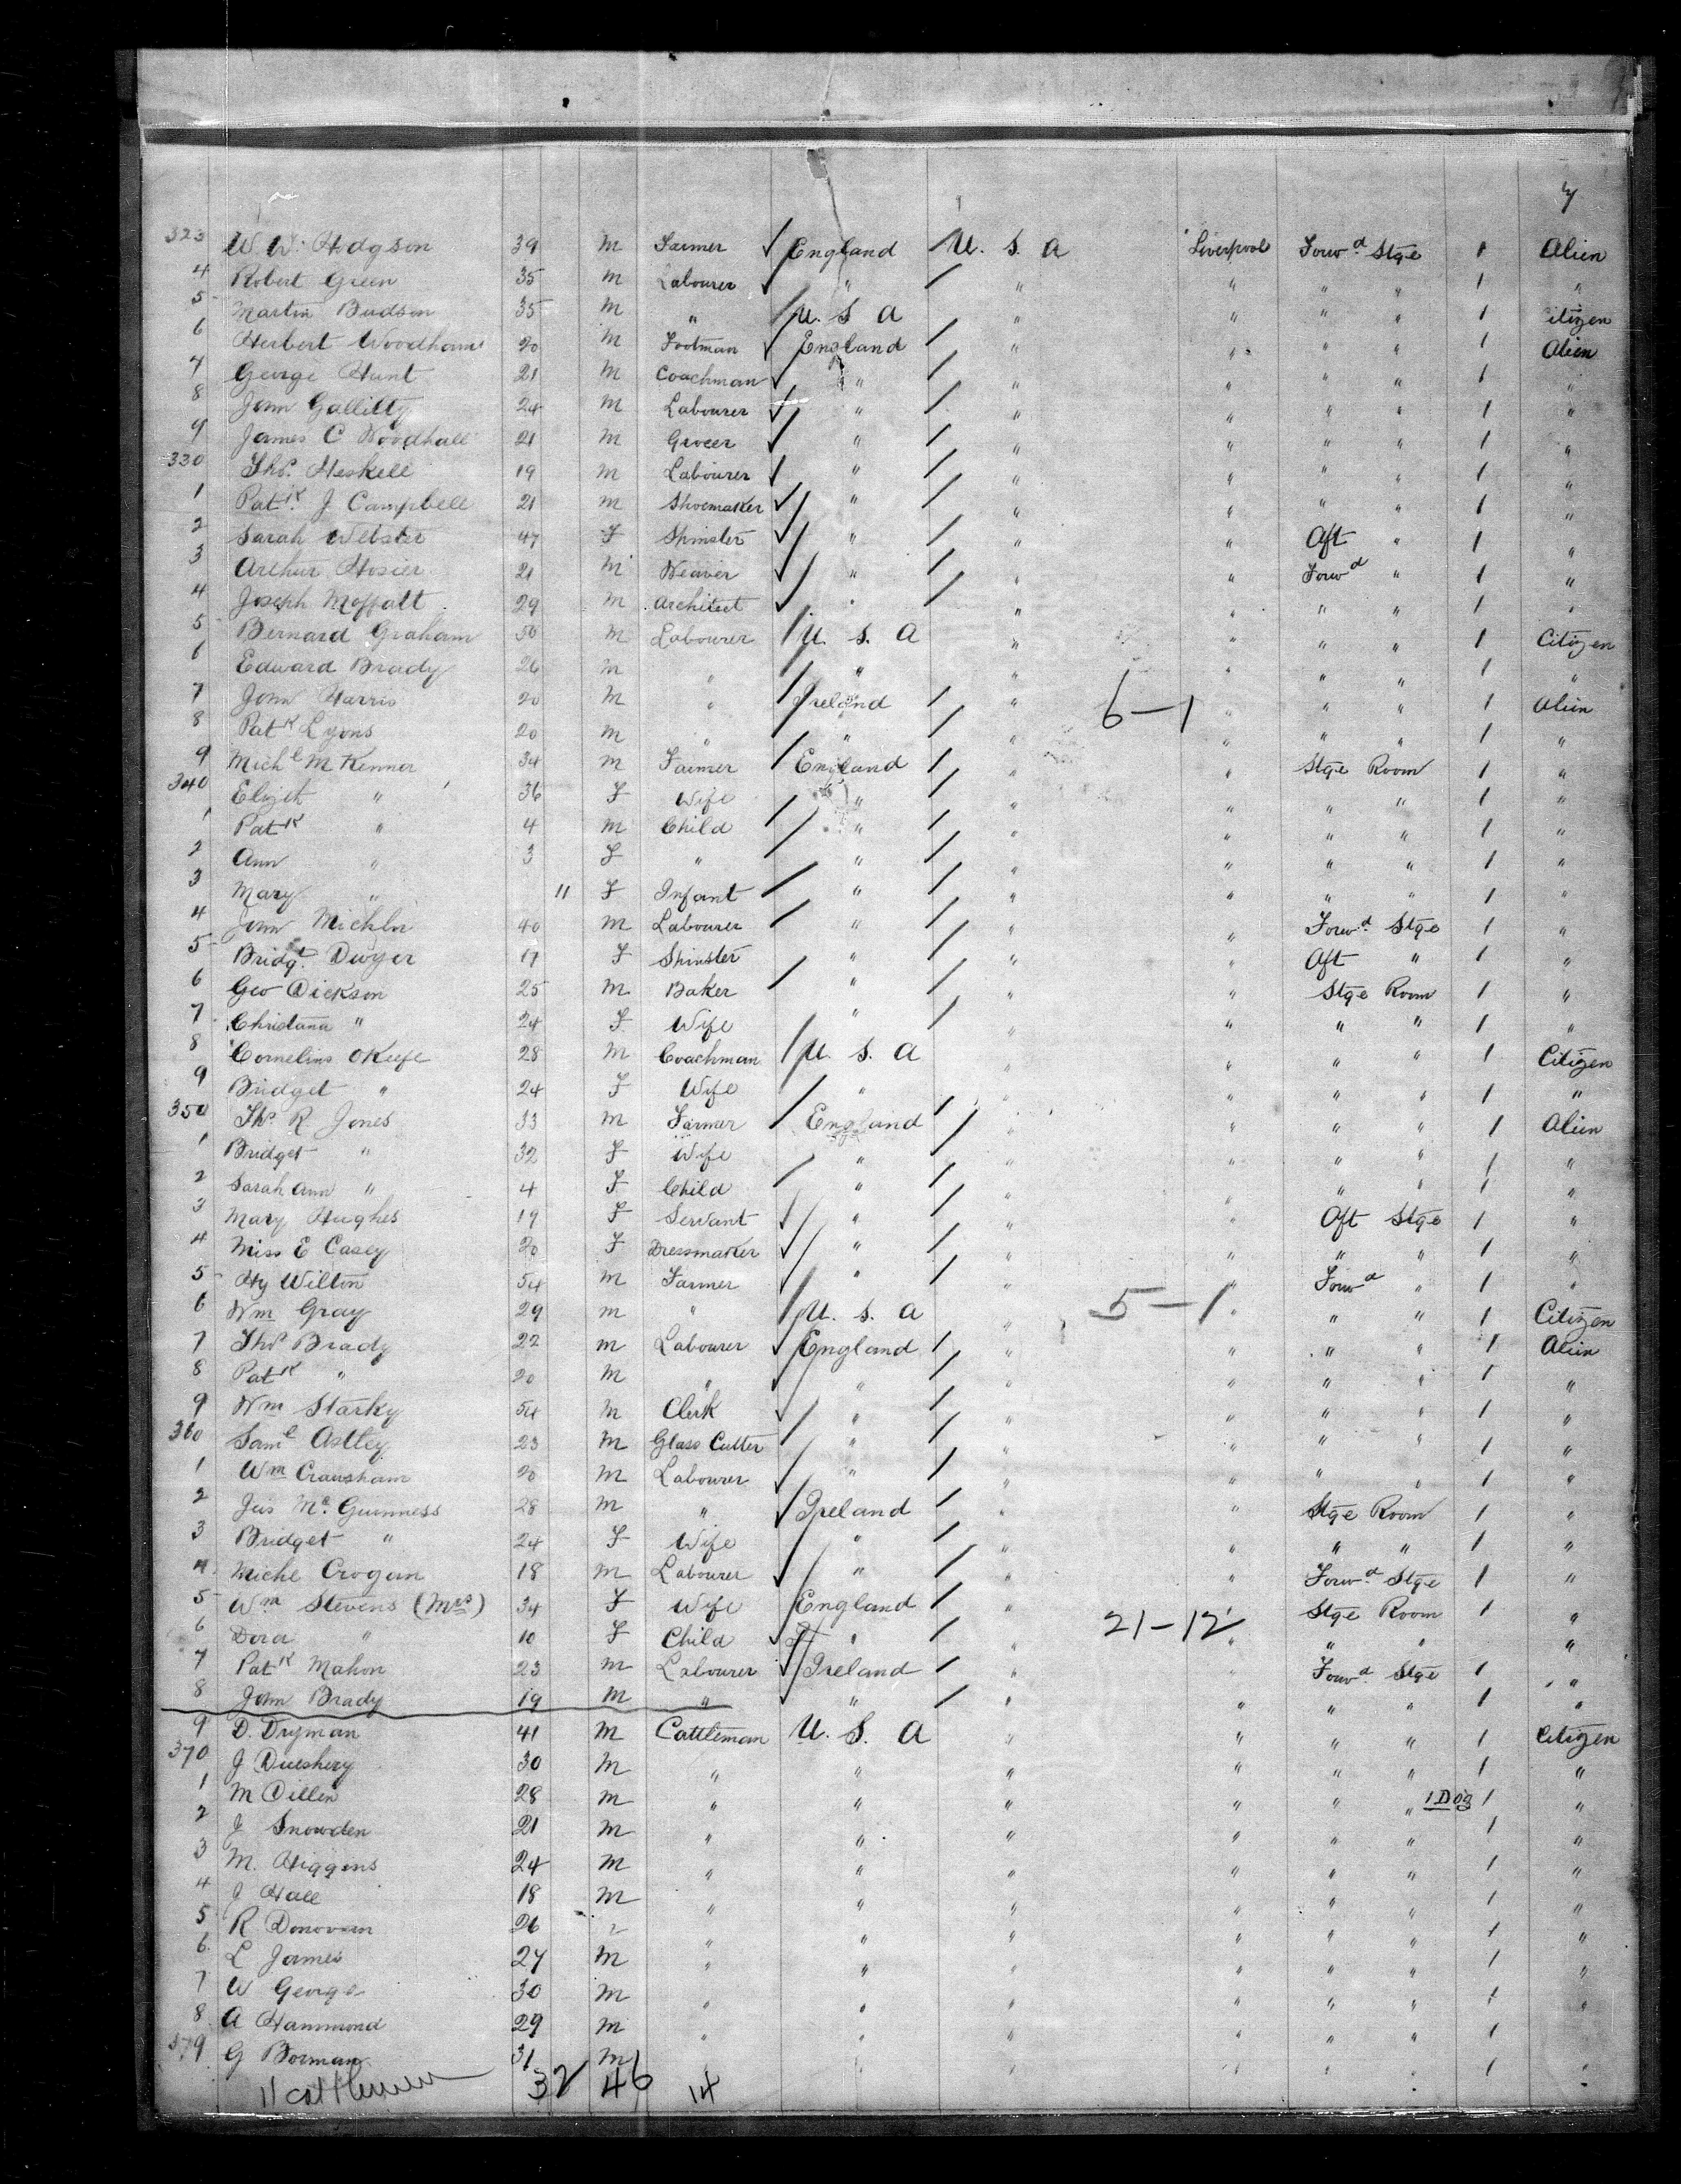 7
323 W. W. Hodgson 39 M Farmer England U. S. A Liverpool Forwd Stge 1 Alien
4 Robert Green 35 M Labourer " " " " " 1 "
5 Martin Budson 35 M " U. S A " " " " 1 Citizen
6 Herbert Woodhams 20 M Footman England " " " " 1 Alien
7 George Hunt 21 M Coachman " " " " " 1 "
8 John Gallilty 24 M Labourer " " " " " 1 "
9 James C Woodhall 21 M Grocer " " " " " 1 "
330 Thos. Heskell 19 M Labourer " " " " " 1 "
1 Patk. J Campbell 21 M Shoemaker " " " " " 1 "
2 Sarah Webster 47 F Spinster " " " Aft " 1 "
3 Arthur Hosier 21 M Weaver " " " Forwd " 1 "
4 Joseph Moffatt 29 M Architect " " " " " 1 "
5 Bernard Graham 50 M Labourer U. S. A " " " " 1 Citizen
6 Edward Brady 26 M " " " " " " 1 "
7 John Harris 20 M " Ireland " 6-1 " " " 1 Alien
8 Patk Lyons 20 M " " " " " " 1 "
9 Michl McKenna 34 M Farmer England " " Stge Room 1 "
340 Elizth " 36 F Wife " " " " " 1 "
1 Patk " 4 M Child " " " " " 1 "
2 Ann " 3 F " " " " " " 1 "
3 Mary " 11 F Infant " " " " " 1 "
4 John Micklin 40 M Labourer " " " Forwd. Stge 1 "
5 Bridgt. Dwyer 17 F Spinster " " " Aft " 1 "
6 Geo Dickson 25 M Baker " " " Stge Room 1 "
7 Christana " 24 F. Wife " " " " " 1 "
8 Cornelius OKeefe 28 M Coachman U. S. A " " " " 1 Citizen
9 Bridget " 24 F Wife " " " " " 1 "
350 Thos R Jones 33 M Farmer England " " " " 1 Alien
1 Bridget " 32 F Wife " " " " " 1 "
2 Sarah Ann " 4 F Child " " " " " 1 "
3 Mary Hughes 19 F Servant " " " Aft Stge 1 "
4 Miss E Casey 20 F Dressmaker " " " " " 1 "
5 Hy Wilton 54 M Farmer " " " Forwd " 1 "
6 Wm Gray 29 M " U. S. A " 5-1 " " " 1 Citizen
7 Thos Brady 22 M Labourer England " " " " 1 Alien
8 Patk " 20 M " " " " " " 1 "
9 Wm Starky 54 M Clerk " " " " " 1 "
360 Saml Astley 23 M Glass Cutter " " " " " 1 "
1 Wm Crausham 20 M Labourer " " " " " 1 "
2 Jas Mc. Guinness 28 M " Ireland " " Stge Room 1 "
3 Bridget " 24 F Wife " " " " " 1 "
4 Michl Crogan 18 M Labourer " " " Forwd. Stge 1 "
5 Wm Stevens (Mrs) 34 F Wife England " " Stge Room 1 "
6 Dora " 10 F Child " " 21-12 " " " 1 "
7 Patk Mahon 23 M Labourer Ireland " " Forwd. Stge 1 "
8 John Brady 19 M " " " " " " 1 "
9 D. Dryman 41 M Cattleman U. S. A " " " " 1 Citizen
370 J 30 M " " " " " " 1 "
1 M Dillin 28 M " " " " " " 1 Dog 1 "
2 J Snowden 21 M " " " " " " 1 "
3 M. Higgins 24 M " " " " " " 1 "
4 J Hall 18 M " " " " " " 1 "
5 R Donovan 26 " " " " " " " 1 "
6 L James 27 M " " " " " " 1 "
7 W George 30 M " " " " " " 1 "
8 A Hammond 29 M " " " " " " 1 "
379 G Borman 31 M " " " " " " 1 "
11 cattlemen 32 46 14